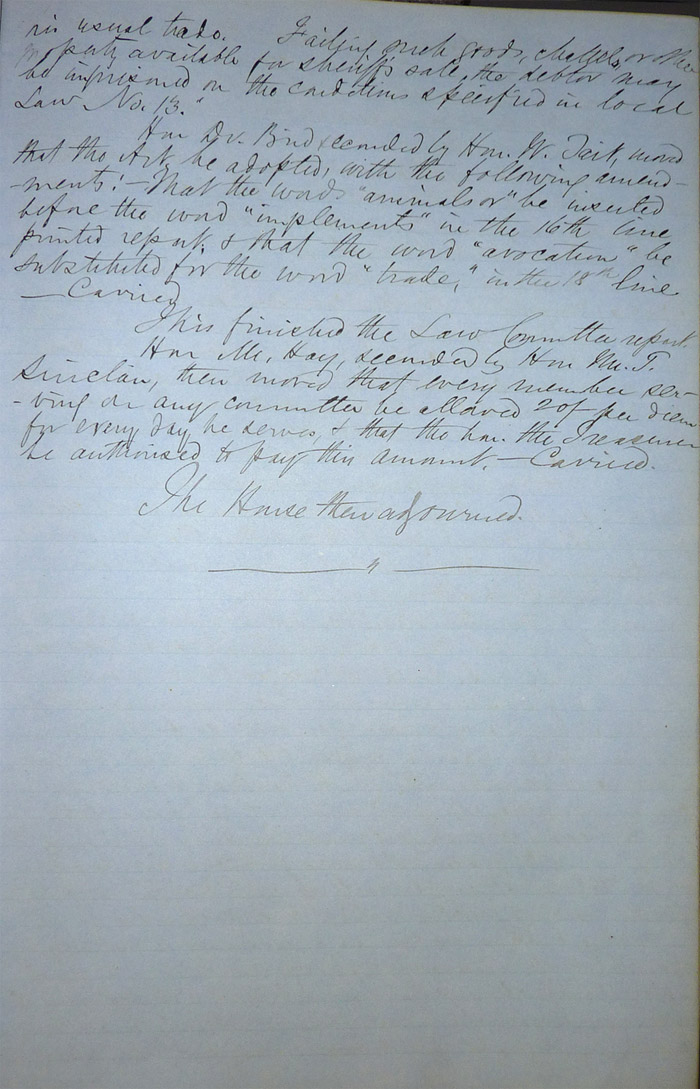 his usual trade. Failing such goods, chattels, or other
property available for sheriff's sale, the debtor may
be imprisoned on the conditions specified in local
Law No. 13."
Hon Dr. Brid seconded by Hon. W. Tait, moved
that the Act be adopted, with the following amend-
-ments:- That the words "animals or" be inserted
before the word "implements" in the 16th line
printed report, & that the word "avocation" be
substituted for the word "trade," in the 18th line
—Carried
This finished the Law Committee report
Hon Mr. Hay, seconded by Hon Mr. T.
Sinclair, then moved that every member ser-
-ving on any committee be allowed 20/- per diem
for every day he serves, & that the hon. the Treasurer
be authorised to pay this amount. — Carried.
The House then adjourned.